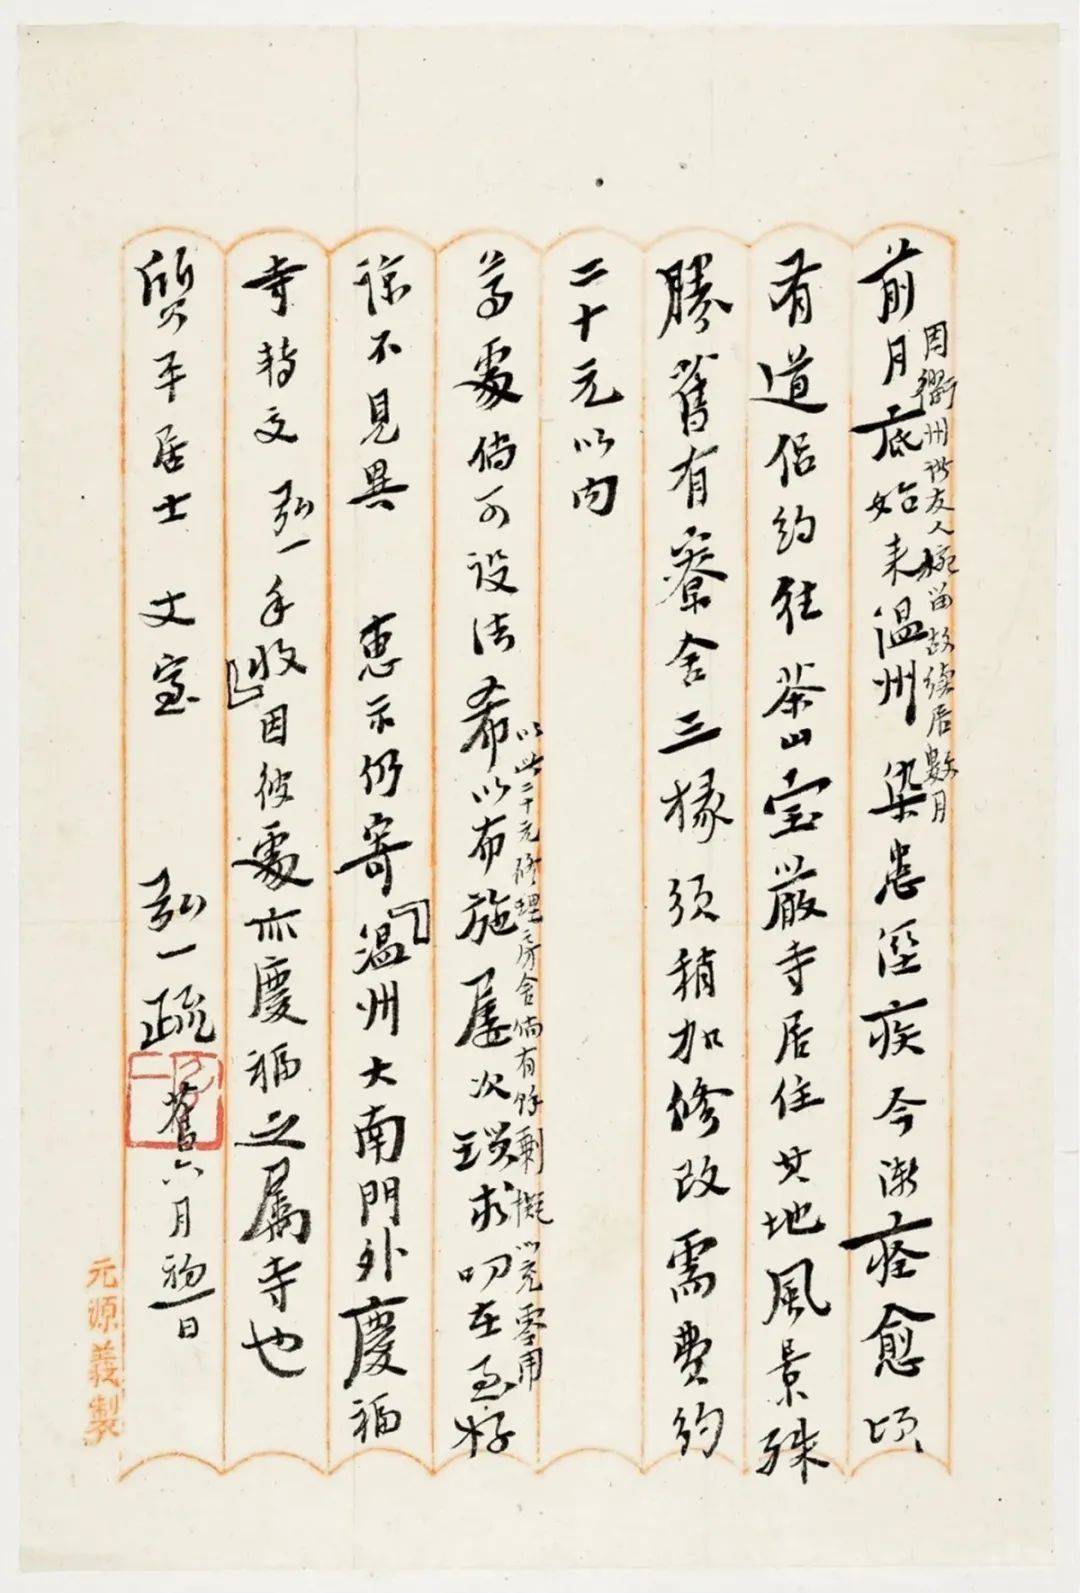 前月底始来温州染患溼疾今漸痊愈頃
因衢州諸友人挽留故續居數月
有道侣約往茶山宝嚴寺居住其地風景殊
勝舊有寮舍三椽須稍加修改需費約
二十元以内
尊處倘可設法希以布施屡次瑣求叨在至好
以此二十元修理房舍倘有餘剩擬以充零用
諒不見異 惠示仍寄『温州大南門外慶福
寺轉交弘一手收』因彼處亦慶福之属寺也
質平居士 丈室 弘一疏 舊六月初一日
元源義製